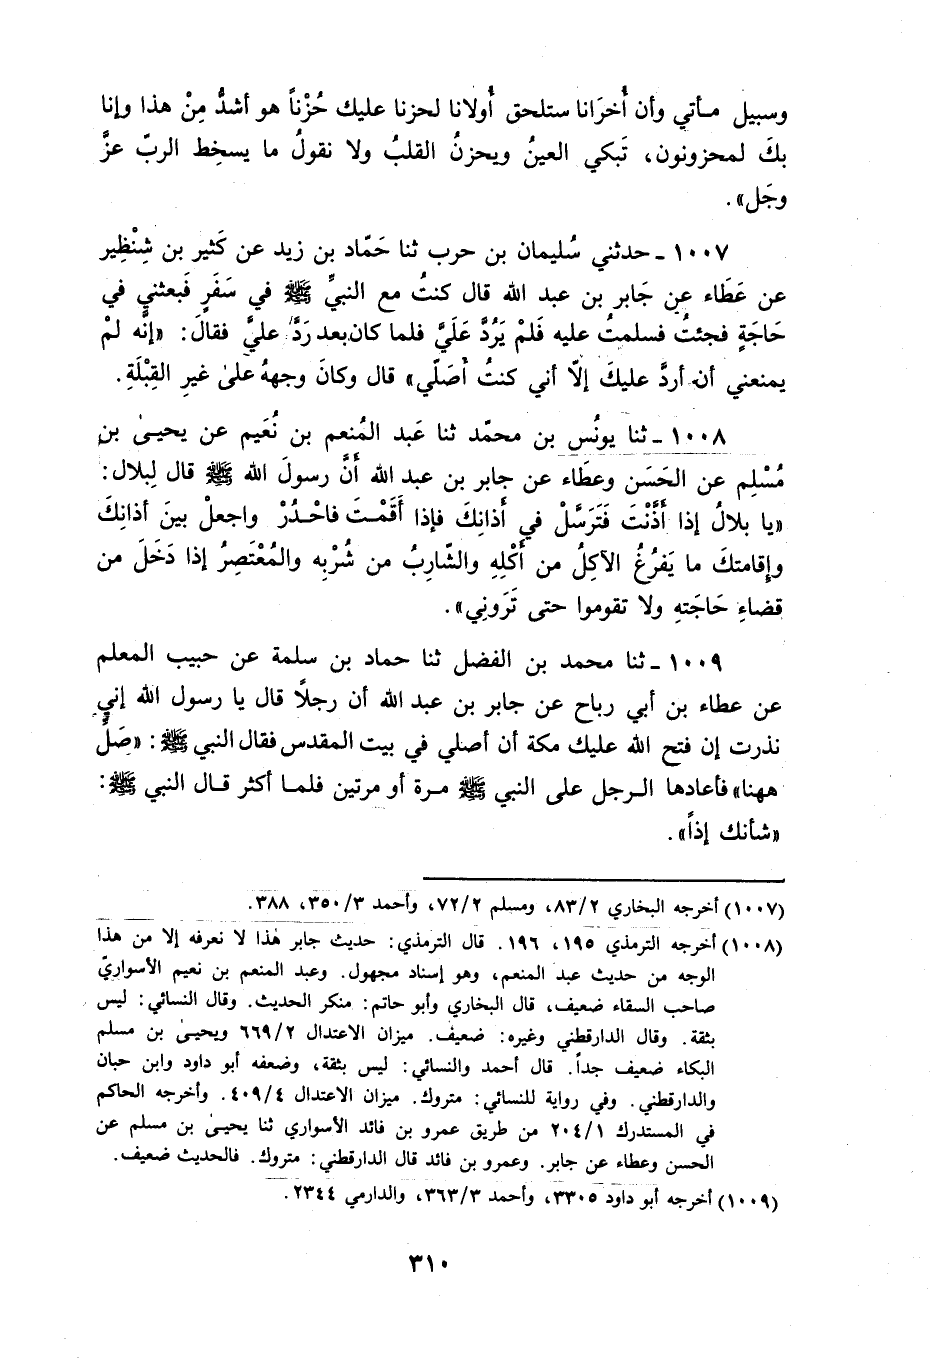 وسبيل مـأتي وأن أُخرَانا ستلحق أُولانا لحزنا عليك حُزْناً هو أشدُّ مِنْ هذا وإنا
بكَ لمحزونون، تَبكي العينُ ويحزنُ القلبُ ولا نقولُ ما يسخِط الربّ عزَّ
وجَل».
١٠٠٧ ـ حدثني سُليمان بن حرب ثنا حَمّاد بن زيد عن كَثير بن شِنْظِير
عن عَطَاء عن جَابر بن عبد الله قال كنتُ مع النبيِّ ﷺ في سَفَرٍ فَبعثني في
حَاجَةٍ فجئتُ فسلمتُ عليه فَلمْ يَرُدَّ عَلَيَّ فلما كان بعد رَدَّ عليَّ فقالَ: «إنَّه لمْ
يمنعني أن أردَّ عليكَ إلّا أني كنتُ أُصَلّي» قال وكانَ وجههُ علىٰ غيرِ القِبْلَةِ.
١٠٠٨ ـ ثنا يونُس بن محمّد ثنا عَبد المُنعم بن نُعَيم عن يحيىٰ بن
مُسْلِم عن الحَسَن وعطَاء عن جابر بن عبد الله أَنَّ رسولَ الله ﷺ قال لِبلال:
«يا بلالُ إذا أَذَّنْتَ فَتَرَسَّلْ في أَذانِكَ فإذا أَقَمْـتَ فاحْـدُرْ واجعلْ بينَ أذانِكَ
وإقامتكَ ما يَفرُغُ الآكِلُ من أَكْلِهِ والشّارِبُ من شُرْبِه والمُعْتَصِرُ إذا دَخَلَ من
قضاءِ حَاجَتهِ ولا تقوموا حتى تَرَونِي».
١٠٠٩ ـ ثنا محمد بن الفضل ثنا حماد بن سلمة عن حبيب المعلم
عن عطاء بن أبي رباح عن جابر بن عبد الله أن رجلاً قال يا رسول الله إني
نذرت إن فتح الله عليك مكة أن أصلي في بيت المقدس فقال النبي ﷺ: «صَلِّ
ههنا» فأعادها الـرجل على النبي ﷺ مـرة أو مرتين فلمـا أكثر قـال النبي ﷺ:
«شأنك إذاً».
(١٠٠٧) أخرجه البخاري ٨٣/٢، ومسلم ٧٢/٢، وأحمد ٣٥٠/٣، ٣٨٨.
(١٠٠٨) أخرجه الترمذي ١٩٥، ١٩٦. قال الترمذي: حديث جابر هٰذا لا نعرفه إلا من هذا
الوجه من حديث عبد المنعم، وهو إسناد مجهول. وعبد المنعم بن نعيم الأسواريّ
صاحب السقاء ضعيف، قال البخاري وأبو حاتم: منكر الحديث. وقال النسائي: ليس
بثقة. وقال الدارقطني وغيره: ضعيف. ميزان الاعتدال ٦٦٩/٢ ويحيىٰ بن مسلم
البكاء ضعيف جداً. قال أحمد والنسائي: ليس بثقة، وضعفه أبو داود وابن حبان
والدارقطني. وفي رواية للنسائي: متروك. ميزان الاعتدال ٤٠٩/٤. وأخرجه الحاكم
في المستدرك ٢٠٤/١ من طريق عمرو بن فائد الأسواري ثنا يحيىٰ بن مسلم عن
الحسن وعطاء عن جابر. وعمرو بن فائد قال الدارقطني: متروك. فالحديث ضعيف.
(١٠٠٩) أخرجه أبو داود ٣٣٠٥، وأحمد ٣٦٣/٣، والدارمي ٢٣٤٤.
٣١٠